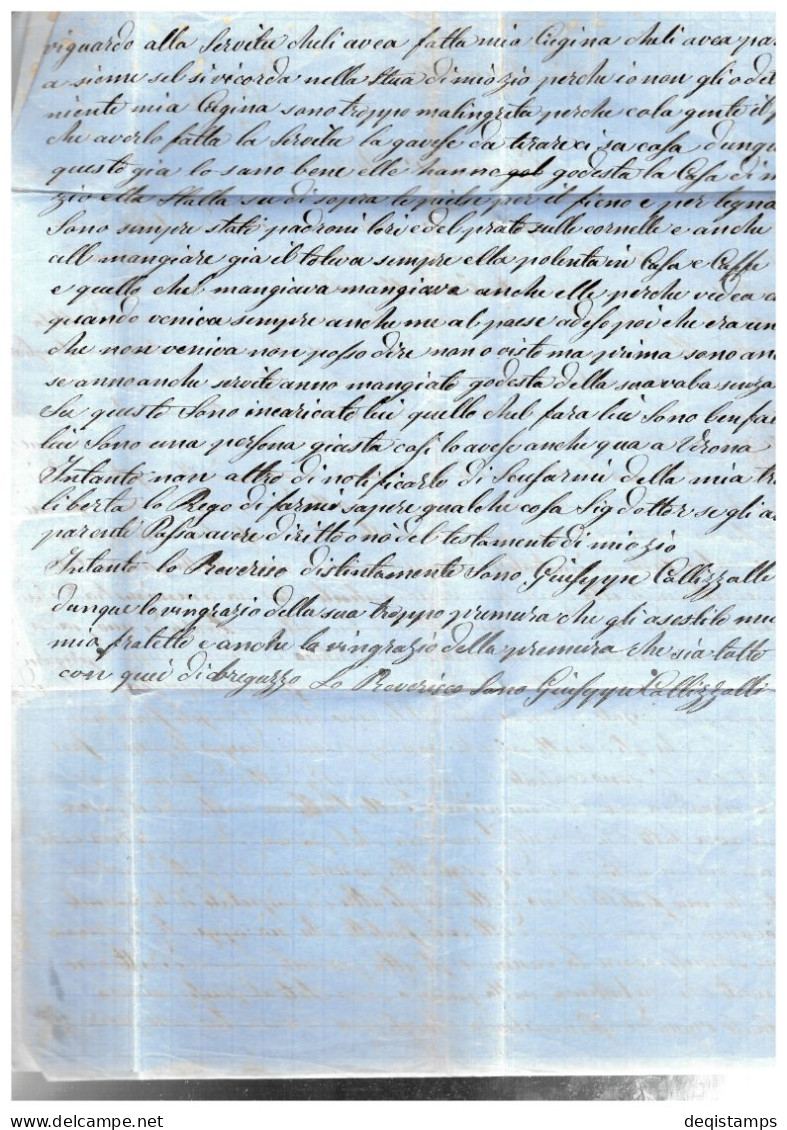 riguardo alla Servitu cheli avea fatta mia Cugina cheli avea pa
a sieme sel si ricorda nella Stua di miozio perche io non gli o det
niente mia Cugina sono troppo malingreta perche cola gente il
che averlo fatta la Servitu la gavese da tirare ci sa casa dunqu
questo gia lo sano bene elle hanno godesta la Casa di m
zio ella Stalla su di sopra le per il fieno e per legna
Sono sempre stati padroni lori e del prato sulle cornelle e anche
cell mangiare gia il toleva sempre ella polenta in Casa e Caffe
e quello che mangiava mangiava anche elle perche vedea a
quando veniva sempre anche me al paese adeso poi che era un
che non veniva non posso dire non o visto ma prima sono an
se anno anche servito anno mangiato godesta della soa vaba senza
Su questo Sono incaricato lui quello chel fara lui Sono ben fa
lui Sono una persona giusta cosi lo avese anche qua a Verona
Intanto non altro di notificarlo di Scusarmi della mia tr
liberta lo Prego di farmi sapere qualche cosa Sig dottor se gli a
parente Passa avere diritto o nò del testamento di miozio
Intanto lo Reveriso distintamente Sono Giuseppe Callizzalli
dunque lo vingrazio della sua troppo premura che gli asestilo mu
mia fratello e anche la vingrazio della premura che sia tutto
con quei di breguzzo Lo Reverisco Sono Giuseppe Callizzalli
deqistamps